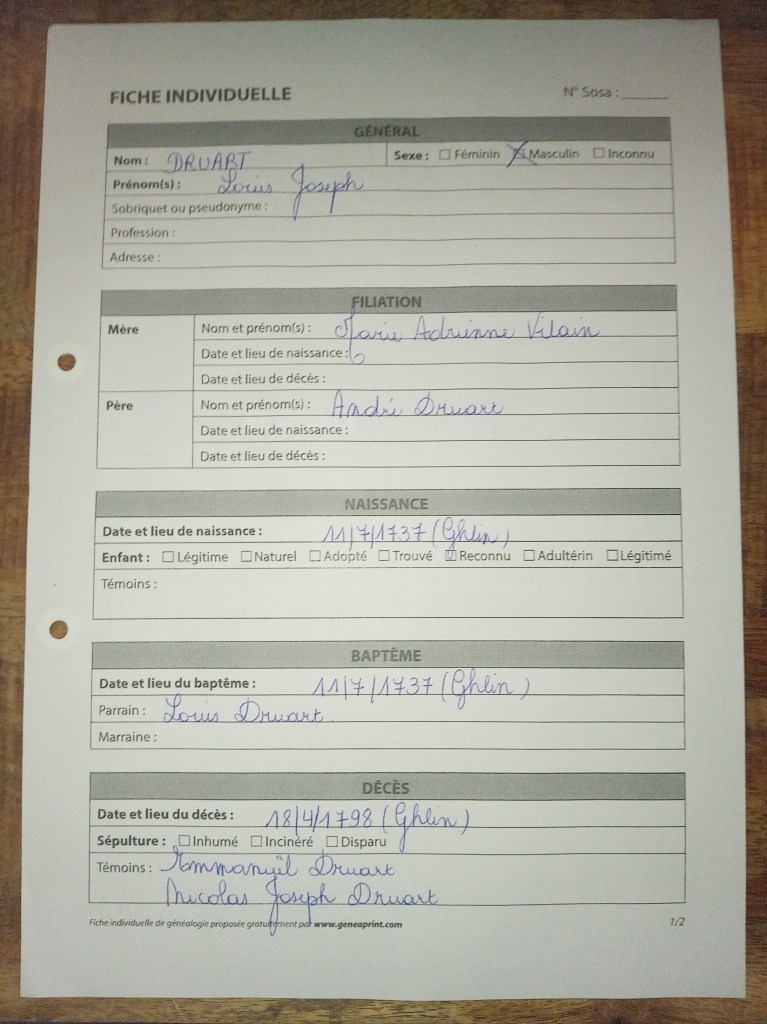 FICHE INDIVIDUELLE N° Sosa : ______
GÉNÉRAL
Nom : DRUART Sexe : ☐ Féminin ☒ Masculin ☐ Inconnu
Prénom(s) : Louis Joseph
Sobriquet ou pseudonyme :
Profession :
Adresse :
FILIATION
Mère Nom et prénom(s) : Marie Adrienne Vilain
Date et lieu de naissance :
Date et lieu de décès :
Père Nom et prénom(s) : André Druart
Date et lieu de naissance :
Date et lieu de décès :
NAISSANCE
Date et lieu de naissance : 11/7/1737 (Ghlin)
Enfant : ☐ Légitime ☐ Naturel ☐ Adopté ☐ Trouvé ☑ Reconnu ☐ Adultérin ☐ Légitimé
Témoins :
BAPTÊME
Date et lieu du baptême : 11/7/1737 (Ghlin)
Parrain : Louis Druart
Marraine :
DÉCÈS
Date et lieu du décès : 18/4/1798 (Ghlin)
Sépulture : ☐ Inhumé ☐ Incinéré ☐ Disparu
Témoins : Emmanuël Druart
Nicolas Joseph Druart
Fiche individuelle de généalogie proposée gratuitement par www.geneaprint.com 1/2